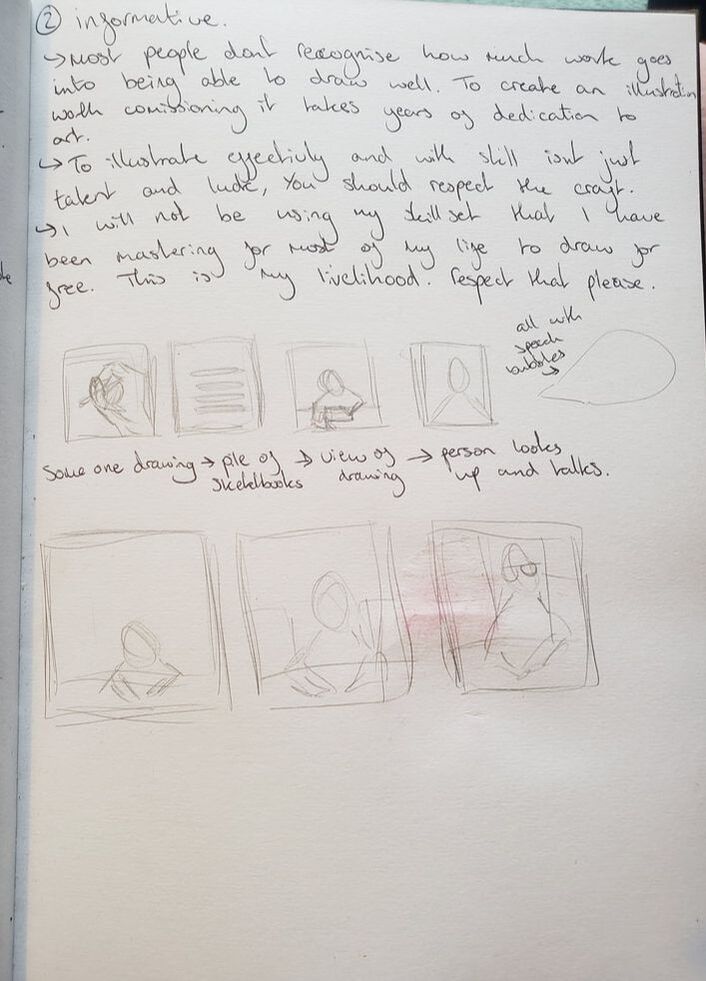 ② informative.
→ Most people dont recognise how much work goes
into being able to draw well. To create an illustration
worth comissioning it takes years of dedication to
art.
→ To illustrate effectivly and with skill isnt just
talent and luck, You should respect the craft.
→ I will not be using my skill set that I have
been mastering for most of my life to draw for
free. This is my livelihood. respect that please.
all with
speech
bubbles
Some one drawing → pile of → view of → person looks
sketchbooks drawing up and talks.